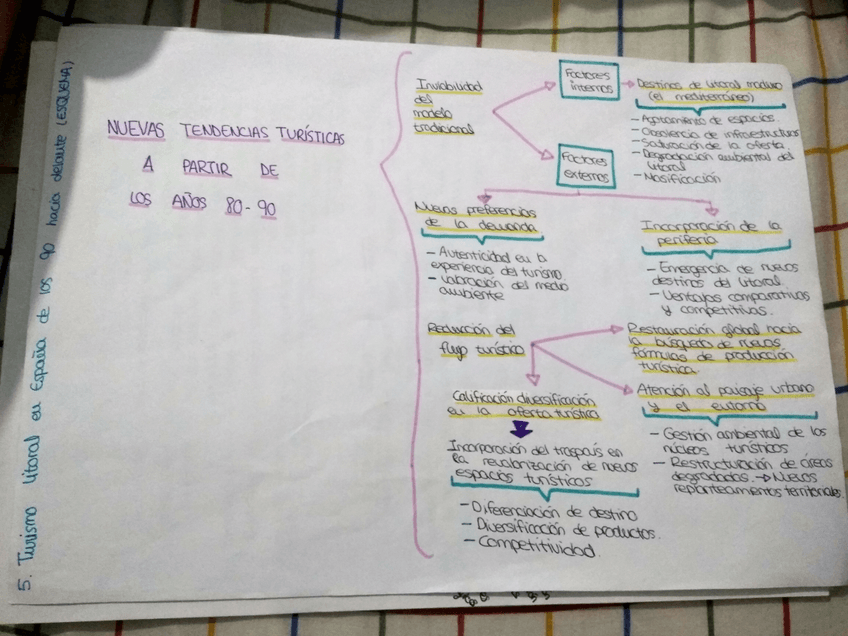 5. Turismo litoral en España de los 90 hacia delante (ESQUEMA)
NUEVAS TENDENCIAS TURÍSTICAS
A PARTIR DE
LOS AÑOS 80-90
Inviabilidad
del
modelo
tradicional
Factores
internos
Destinos de litoral maduro
(el mediterráneo)
- Agotamiento de espacios.
- Obsolencia de infraestructuras
- Saturación de la oferta.
- Degradación ambiental del
litoral
- Masificación
Factores
externos
Nuevas preferencias
de la demanda
- Autenticidad en la
experiencia del turismo
- Valoración del medio
ambiente
Incorporación de la
periferia
- Emergencia de nuevos
destinos del litoral.
- Ventajas comparativas
y competitivas.
Reducción del
flujo turístico
Restauración global hacia
la búsqueda de nuevas
fórmulas de producción
turística.
Atención al paisaje urbano
y el entorno
- Gestión ambiental de los
núcleos turísticos
- Restructuración de áreas
degradadas. → Nuevos
replanteamientos territoriales.
Calificación diversificación
en la oferta turística
Incorporación del traspaís en
la revalorización de nuevos
espacios turísticos
- Diferenciación de destino
- Diversificación de productos.
- Competitividad.